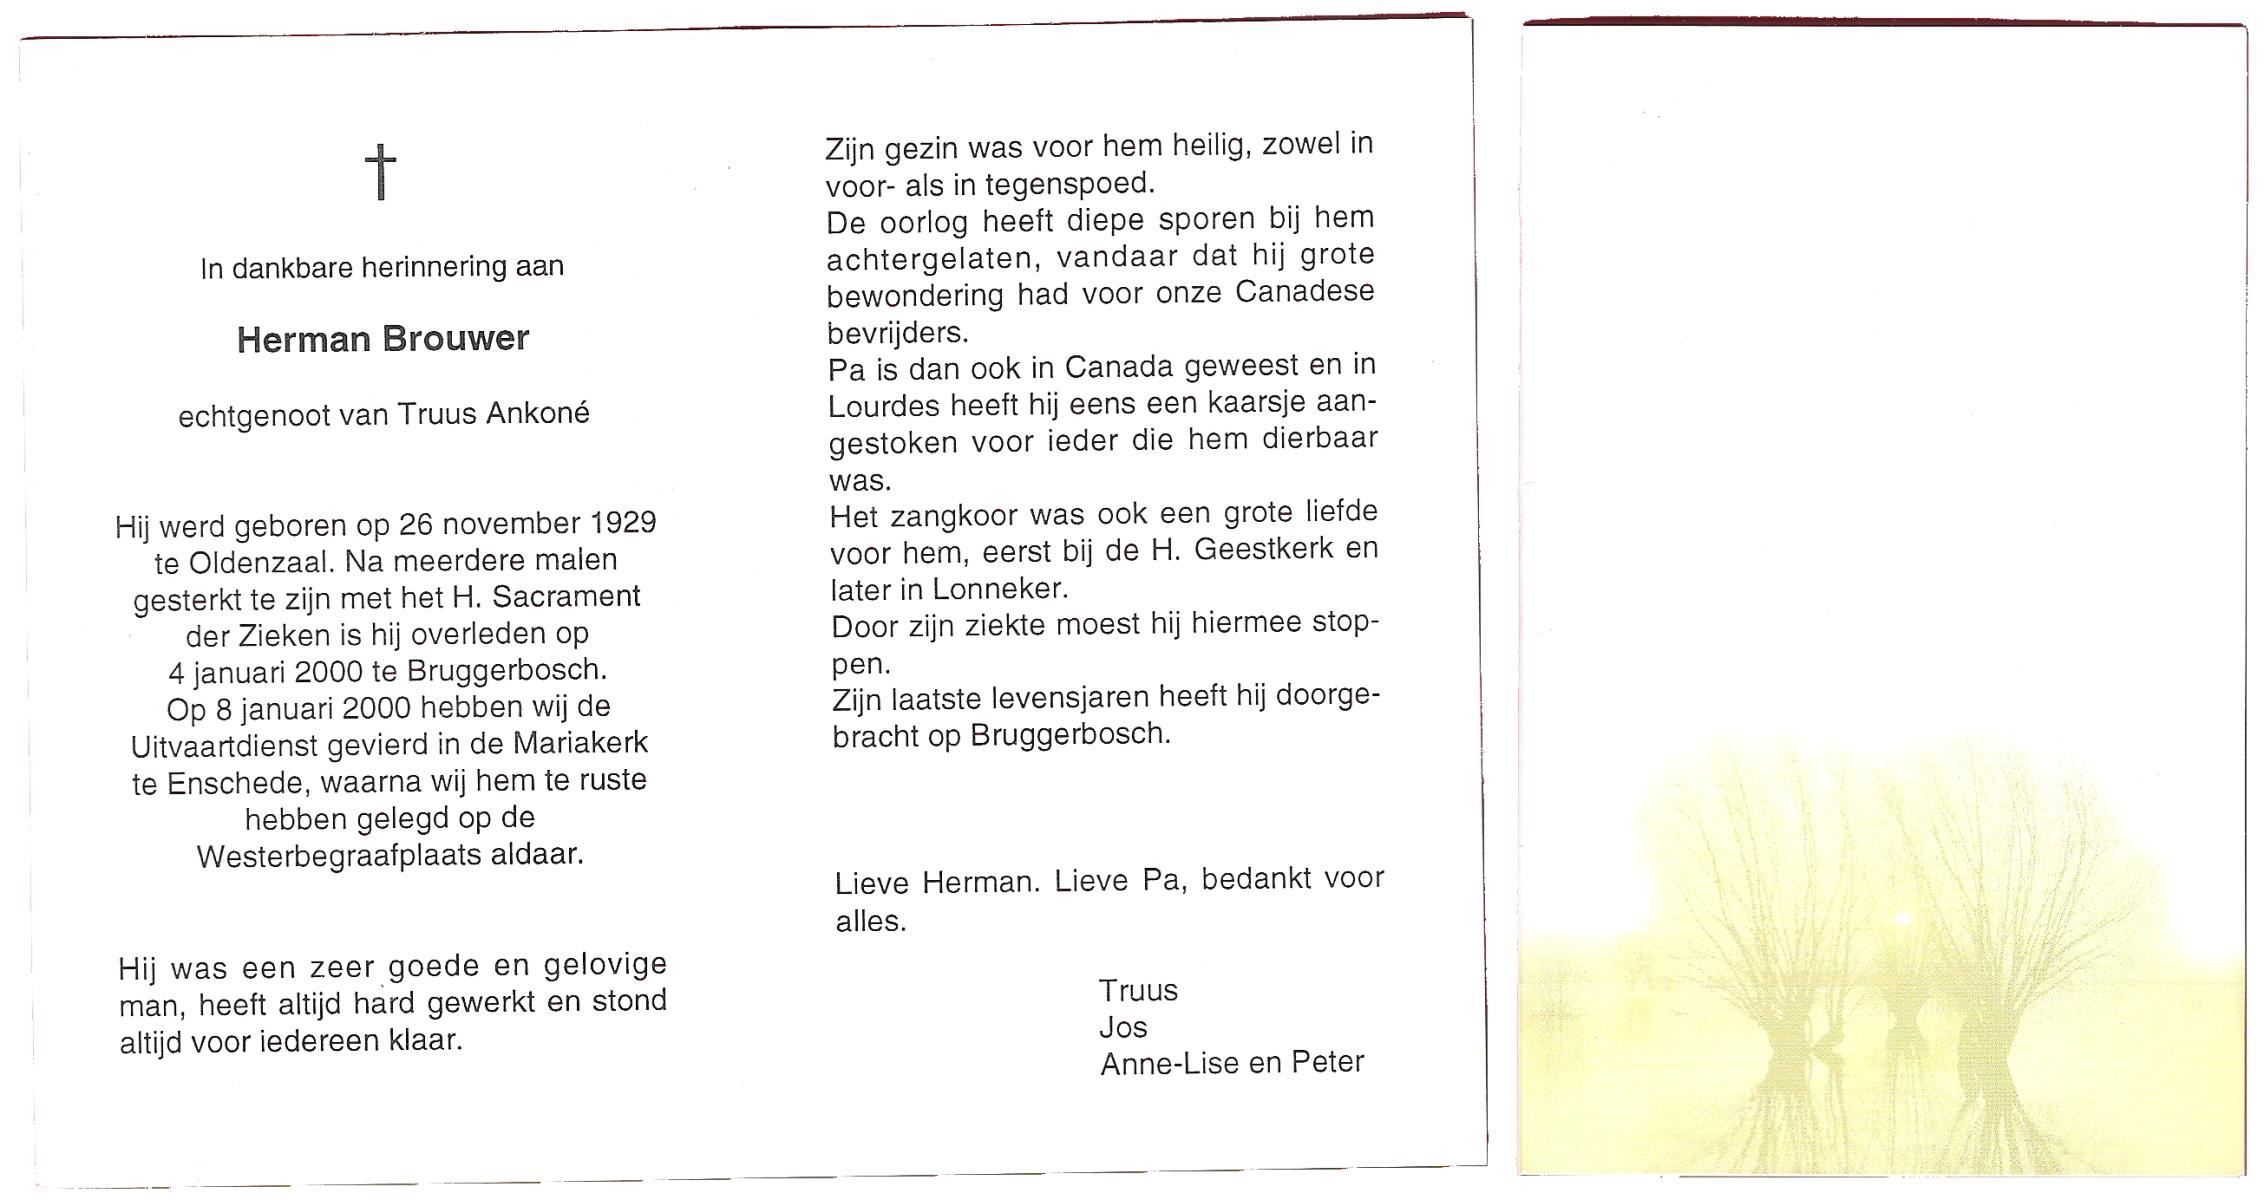 In dankbare herinnering aan
Herman Brouwer
echtgenoot van Truus Ankoné
Hij werd geboren op 26 november 1929
te Oldenzaal. Na meerdere malen
gesterkt te zijn met het H. Sacrament
der Zieken is hij overleden op
4 januari 2000 te Bruggerbosch.
Op 8 januari 2000 hebben wij de
Uitvaartdienst gevierd in de Mariakerk
te Enschede, waarna wij hem te ruste
hebben gelegd op de
Westerbegraafplaats aldaar.
Hij was een zeer goede en gelovige
man, heeft altijd hard gewerkt en stond
altijd voor iedereen klaar.
Zijn gezin was voor hem heilig, zowel in
voor- als in tegenspoed.
De oorlog heeft diepe sporen bij hem
achtergelaten, vandaar dat hij grote
bewondering had voor onze Canadese
bevrijders.
Pa is dan ook in Canada geweest en in
Lourdes heeft hij eens een kaarsje aan-
gestoken voor ieder die hem dierbaar
was.
Het zangkoor was ook een grote liefde
voor hem, eerst bij de H. Geestkerk en
later in Lonneker.
Door zijn ziekte moest hij hiermee stop-
pen.
Zijn laatste levensjaren heeft hij doorge-
bracht op Bruggerbosch.
Lieve Herman. Lieve Pa, bedankt voor
alles.
Truus
Jos
Anne-Lise en Peter